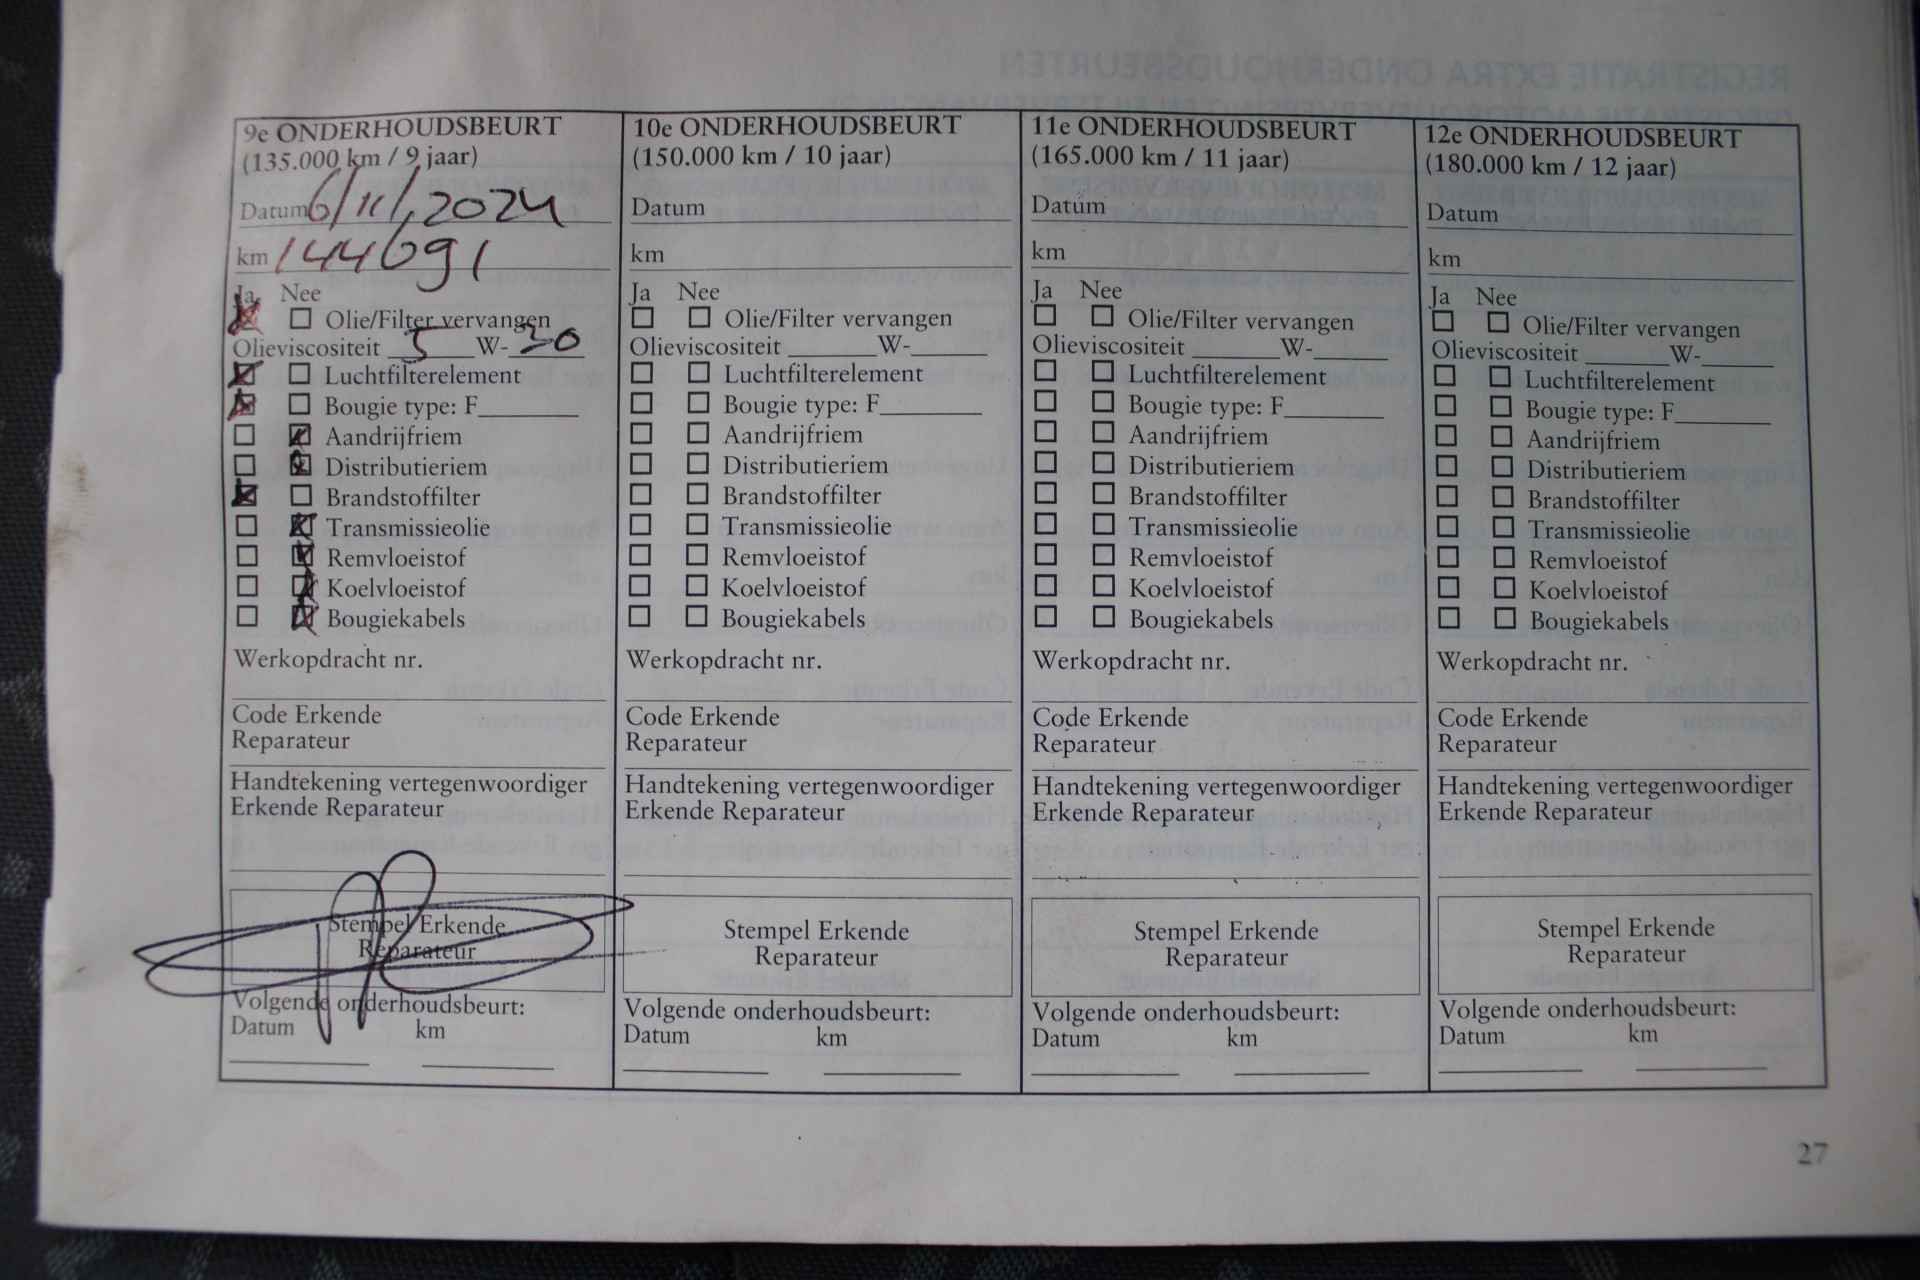 9e ONDERHOUDSBEURT
(135.000 km / 9 jaar)
Datum 6/11/2024
km 144691
Ja Nee
Olie/Filter vervangen
Olieviscositeit 5 W- 30
Luchtfilterelement
Bougie type: F
Aandrijfriem
Distributieriem
Brandstoffilter
Transmissieolie
Remvloeistof
Koelvloeistof
Bougiekabels
Werkopdracht nr.
Code Erkende
Reparateur
Handtekening vertegenwoordiger
Erkende Reparateur
Stempel Erkende
Reparateur
Volgende onderhoudsbeurt:
Datum km
10e ONDERHOUDSBEURT
(150.000 km / 10 jaar)
Datum
km
Ja Nee
Olie/Filter vervangen
Olieviscositeit W-
Luchtfilterelement
Bougie type: F
Aandrijfriem
Distributieriem
Brandstoffilter
Transmissieolie
Remvloeistof
Koelvloeistof
Bougiekabels
Werkopdracht nr.
Code Erkende
Reparateur
Handtekening vertegenwoordiger
Erkende Reparateur
Stempel Erkende
Reparateur
Volgende onderhoudsbeurt:
Datum km
11e ONDERHOUDSBEURT
(165.000 km / 11 jaar)
Datum
km
Ja Nee
Olie/Filter vervangen
Olieviscositeit W-
Luchtfilterelement
Bougie type: F
Aandrijfriem
Distributieriem
Brandstoffilter
Transmissieolie
Remvloeistof
Koelvloeistof
Bougiekabels
Werkopdracht nr.
Code Erkende
Reparateur
Handtekening vertegenwoordiger
Erkende Reparateur
Stempel Erkende
Reparateur
Volgende onderhoudsbeurt:
Datum km
12e ONDERHOUDSBEURT
(180.000 km / 12 jaar)
Datum
km
Ja Nee
Olie/Filter vervangen
Olieviscositeit W-
Luchtfilterelement
Bougie type: F
Aandrijfriem
Distributieriem
Brandstoffilter
Transmissieolie
Remvloeistof
Koelvloeistof
Bougiekabels
Werkopdracht nr.
Code Erkende
Reparateur
Handtekening vertegenwoordiger
Erkende Reparateur
Stempel Erkende
Reparateur
Volgende onderhoudsbeurt:
Datum km
27